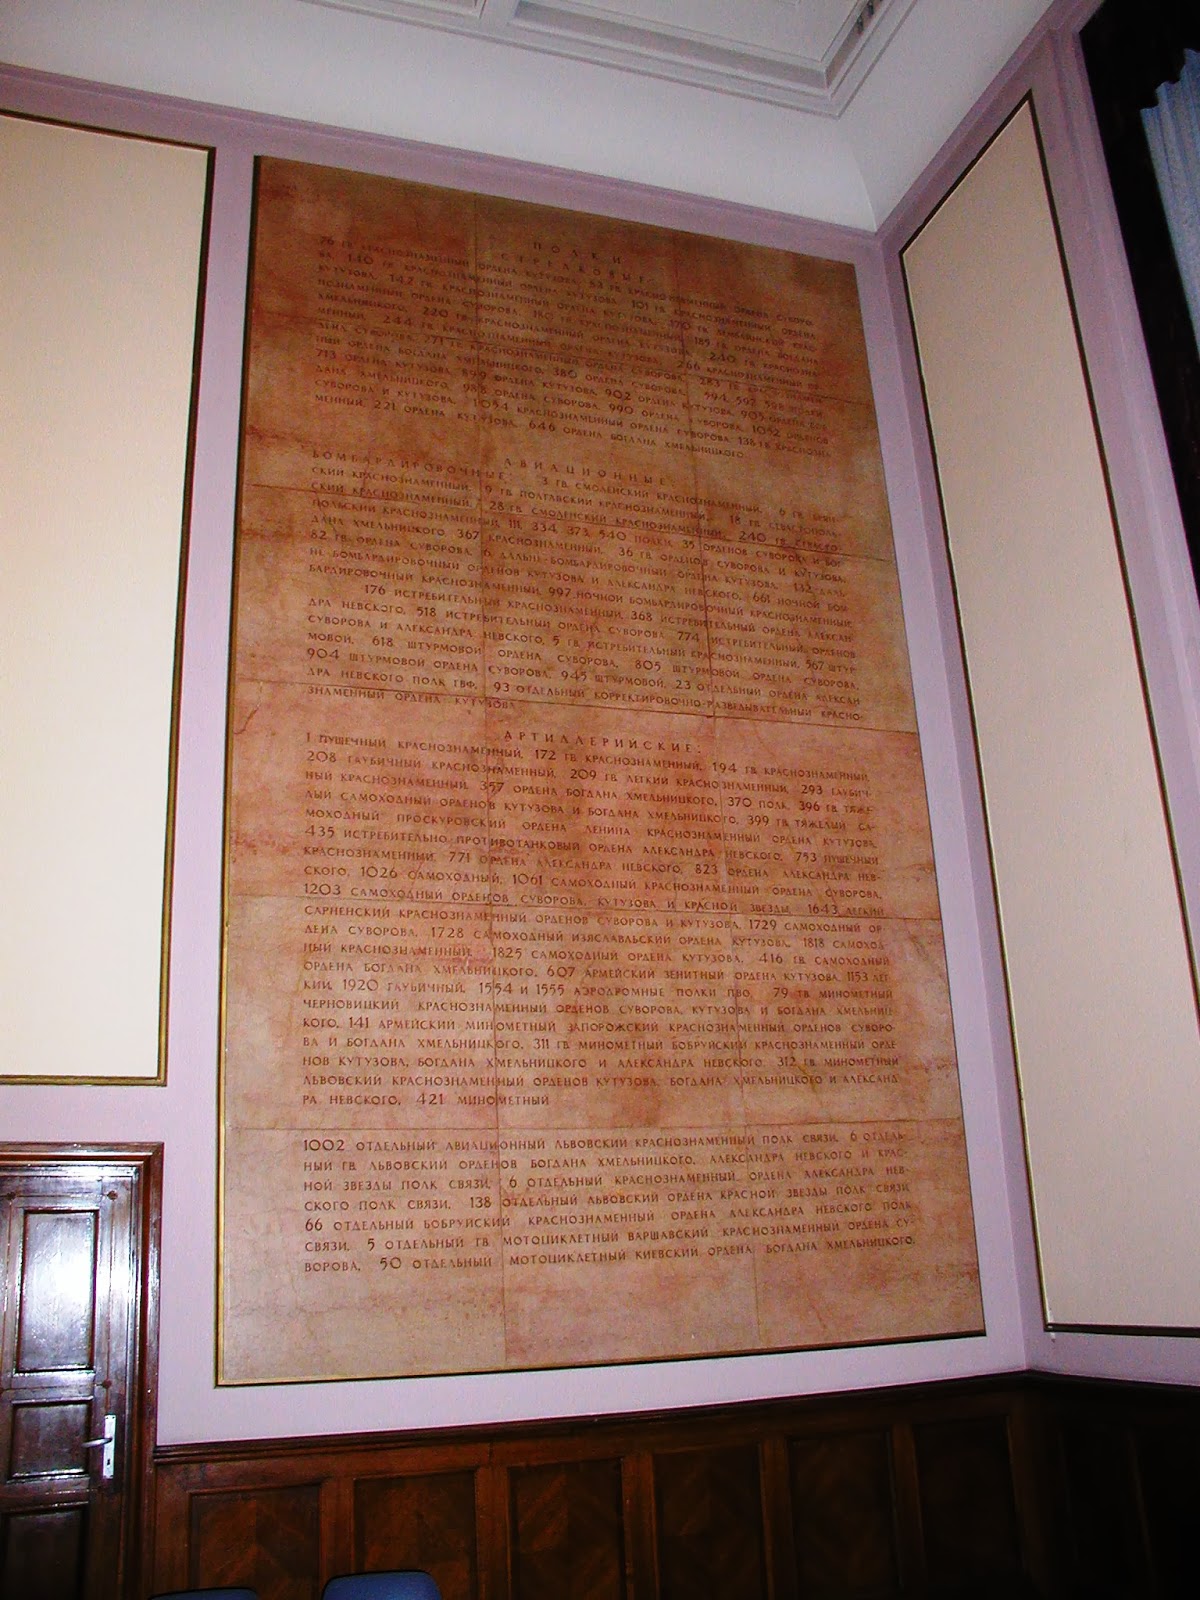 ПОЛКИ
СТРЕЛКОВЫЕ:
76 ГВ. КРАСНОЗНАМЕННЫЙ ОРДЕНА КУТУЗОВА, ГВ. КРАСНОЗНАМЕННЫЙ ОРДЕНА СУВОРО-
ВА, 140 ГВ. КРАСНОЗНАМЕННЫЙ ОРДЕНА КУТУЗОВА, 101 ГВ. КРАСНОЗНАМЕННЫЙ ОРДЕНА
КУТУЗОВА, 142 ГВ. КРАСНОЗНАМЕННЫЙ ОРДЕНА КУТУЗОВА, 170 ГВ. ДЕМБЛИНСКИЙ КРАС-
НОЗНАМЕННЫЙ ОРДЕНА СУВОРОВА, ГВ. КРАСНОЗНАМЕННЫЙ, 185 ГВ. ОРДЕНА БОГДАНА
ХМЕЛЬНИЦКОГО, 220 ГВ. КРАСНОЗНАМЕННЫЙ ОРДЕНА КУТУЗОВА, 240 ГВ. КРАСНОЗНА-
МЕННЫЙ, 244 ГВ. КРАСНОЗНАМЕННЫЙ ОРДЕНА КУТУЗОВА, 266 КРАСНОЗНАМЕННЫЙ ОР-
ДЕНА СУВОРОВА, 271 ГВ. КРАСНОЗНАМЕННЫЙ ОРДЕНА СУВОРОВА, 283 ГВ. КРАСНОЗНАМЕН-
НЫЙ ОРДЕНА БОГДАНА ХМЕЛЬНИЦКОГО, 380 ОРДЕНА СУВОРОВА, 594, 597, 598 ПОЛКИ,
713 ОРДЕНА КУТУЗОВА, 899 ОРДЕНА КУТУЗОВА, 902 ОРДЕНА КУТУЗОВА, 905 ОРДЕНА БОГ-
ДАНА ХМЕЛЬНИЦКОГО, 988 ОРДЕНА СУВОРОВА, 990 ОРДЕНА СУВОРОВА, 1052 ОРДЕНОВ
СУВОРОВА И КУТУЗОВА, 1054 КРАСНОЗНАМЕННЫЙ ОРДЕНА СУВОРОВА, 138 ГВ. КРАСНОЗНА-
МЕННЫЙ, 221 ОРДЕНА КУТУЗОВА, 646 ОРДЕНА БОГДАНА ХМЕЛЬНИЦКОГО.
АВИАЦИОННЫЕ:
БОМБАРДИРОВОЧНЫЕ: 3 ГВ. СМОЛЕНСКИЙ КРАСНОЗНАМЕННЫЙ, 6 ГВ. БРЯН-
СКИЙ КРАСНОЗНАМЕННЫЙ, 9 ГВ. ПОЛТАВСКИЙ КРАСНОЗНАМЕННЫЙ, 18 ГВ. СЕВАСТОПОЛЬ-
СКИЙ КРАСНОЗНАМЕННЫЙ, 28 ГВ. СМОЛЕНСКИЙ КРАСНОЗНАМЕННЫЙ, 240 ГВ. СЕВАСТО-
ПОЛЬСКИЙ КРАСНОЗНАМЕННЫЙ, 111, 334, 373, 540 ПОЛКИ, 35 ОРДЕНОВ СУВОРОВА И БОГ-
ДАНА ХМЕЛЬНИЦКОГО, 367 КРАСНОЗНАМЕННЫЙ, 36 ГВ. ОРДЕНОВ СУВОРОВА И КУТУЗОВА,
82 ГВ. ОРДЕНА СУВОРОВА, 6 ДАЛЬНЕ-БОМБАРДИРОВОЧНЫЙ ОРДЕНА КУТУЗОВА, 132 ДАЛЬ-
НЕ-БОМБАРДИРОВОЧНЫЙ ОРДЕНОВ КУТУЗОВА И АЛЕКСАНДРА НЕВСКОГО, 661 НОЧНОЙ БОМ-
БАРДИРОВОЧНЫЙ КРАСНОЗНАМЕННЫЙ, 997 НОЧНОЙ БОМБАРДИРОВОЧНЫЙ КРАСНОЗНАМЕННЫЙ.
176 ИСТРЕБИТЕЛЬНЫЙ КРАСНОЗНАМЕННЫЙ, 368 ИСТРЕБИТЕЛЬНЫЙ ОРДЕНА АЛЕКСАН-
ДРА НЕВСКОГО, 518 ИСТРЕБИТЕЛЬНЫЙ ОРДЕНА СУВОРОВА, 774 ИСТРЕБИТЕЛЬНЫЙ ОРДЕНОВ
СУВОРОВА И АЛЕКСАНДРА НЕВСКОГО, 5 ГВ. ИСТРЕБИТЕЛЬНЫЙ КРАСНОЗНАМЕННЫЙ, 567 ШТУР-
МОВОЙ, 618 ШТУРМОВОЙ ОРДЕНА СУВОРОВА, 805 ШТУРМОВОЙ ОРДЕНА СУВОРОВА,
904 ШТУРМОВОЙ ОРДЕНА СУВОРОВА, 945 ШТУРМОВОЙ, 23 ОТДЕЛЬНЫЙ ОРДЕНА АЛЕКСАН-
ДРА НЕВСКОГО ПОЛК ГВФ, 93 ОТДЕЛЬНЫЙ КОРРЕКТИРОВОЧНО-РАЗВЕДЫВАТЕЛЬНЫЙ КРАСНО-
ЗНАМЕННЫЙ ОРДЕНА КУТУЗОВА.
АРТИЛЛЕРИЙСКИЕ:
1 ПУШЕЧНЫЙ КРАСНОЗНАМЕННЫЙ, 172 ГВ. КРАСНОЗНАМЕННЫЙ, 194 ГВ. КРАСНОЗНАМЕННЫЙ,
208 ГАУБИЧНЫЙ КРАСНОЗНАМЕННЫЙ, 209 ГВ. ЛЕГКИЙ КРАСНОЗНАМЕННЫЙ, 293 ГАУБИЧ-
НЫЙ КРАСНОЗНАМЕННЫЙ, 357 ОРДЕНА БОГДАНА ХМЕЛЬНИЦКОГО, 370 ПОЛК, 396 ГВ. ТЯЖЕ-
ЛЫЙ САМОХОДНЫЙ ОРДЕНОВ КУТУЗОВА И БОГДАНА ХМЕЛЬНИЦКОГО, 399 ГВ. ТЯЖЕЛЫЙ СА-
МОХОДНЫЙ ПРОСКУРОВСКИЙ ОРДЕНА ЛЕНИНА КРАСНОЗНАМЕННЫЙ ОРДЕНА КУТУЗОВА,
435 ИСТРЕБИТЕЛЬНО ПРОТИВОТАНКОВЫЙ ОРДЕНА АЛЕКСАНДРА НЕВСКОГО, 753 ПУШЕЧНЫЙ
КРАСНОЗНАМЕННЫЙ, 771 ОРДЕНА АЛЕКСАНДРА НЕВСКОГО, 823 ОРДЕНА АЛЕКСАНДРА НЕВ-
СКОГО, 1026 САМОХОДНЫЙ, 1061 САМОХОДНЫЙ КРАСНОЗНАМЕННЫЙ ОРДЕНА СУВОРОВА,
1203 САМОХОДНЫЙ ОРДЕНОВ СУВОРОВА, КУТУЗОВА И КРАСНОЙ ЗВЕЗДЫ, 1643 ЛЕГКИЙ
САРНЕНСКИЙ КРАСНОЗНАМЕННЫЙ ОРДЕНОВ СУВОРОВА И КУТУЗОВА, 1729 САМОХОДНЫЙ ОР-
ДЕНА СУВОРОВА, 1728 САМОХОДНЫЙ ИЗЯСЛАВЛЬСКИЙ ОРДЕНА КУТУЗОВА, 1818 САМОХОД-
НЫЙ КРАСНОЗНАМЕННЫЙ, 1825 САМОХОДНЫЙ ОРДЕНА КУТУЗОВА, 416 ГВ. САМОХОДНЫЙ
ОРДЕНА БОГДАНА ХМЕЛЬНИЦКОГО, 607 АРМЕЙСКИЙ ЗЕНИТНЫЙ ОРДЕНА КУТУЗОВА, 1153 ЛЕГ-
КИЙ, 1920 ГАУБИЧНЫЙ, 1554 И 1555 АЭРОДРОМНЫЕ ПОЛКИ ПВО, 79 ГВ. МИНОМЕТНЫЙ
ЧЕРНОВИЦКИЙ КРАСНОЗНАМЕННЫЙ ОРДЕНОВ СУВОРОВА, КУТУЗОВА И БОГДАНА ХМЕЛЬНИЦ-
КОГО, 141 АРМЕЙСКИЙ МИНОМЕТНЫЙ ЗАПОРОЖСКИЙ КРАСНОЗНАМЕННЫЙ ОРДЕНОВ СУВОРО-
ВА И БОГДАНА ХМЕЛЬНИЦКОГО, 311 ГВ. МИНОМЕТНЫЙ БОБРУЙСКИЙ КРАСНОЗНАМЕННЫЙ ОРДЕ-
НОВ КУТУЗОВА, БОГДАНА ХМЕЛЬНИЦКОГО И АЛЕКСАНДРА НЕВСКОГО, 312 ГВ. МИНОМЕТНЫЙ
ЛЬВОВСКИЙ КРАСНОЗНАМЕННЫЙ ОРДЕНОВ КУТУЗОВА, БОГДАНА ХМЕЛЬНИЦКОГО И АЛЕКСАНД-
РА НЕВСКОГО, 421 МИНОМЕТНЫЙ
1002 ОТДЕЛЬНЫЙ АВИАЦИОННЫЙ ЛЬВОВСКИЙ КРАСНОЗНАМЕННЫЙ ПОЛК СВЯЗИ, 6 ОТДЕЛЬ-
НЫЙ ГВ. ЛЬВОВСКИЙ ОРДЕНОВ БОГДАНА ХМЕЛЬНИЦКОГО, АЛЕКСАНДРА НЕВСКОГО И КРАС-
НОЙ ЗВЕЗДЫ ПОЛК СВЯЗИ, 6 ОТДЕЛЬНЫЙ КРАСНОЗНАМЕННЫЙ ОРДЕНА АЛЕКСАНДРА НЕВ-
СКОГО ПОЛК СВЯЗИ, 138 ОТДЕЛЬНЫЙ ЛЬВОВСКИЙ ОРДЕНА КРАСНОЙ ЗВЕЗДЫ ПОЛК СВЯЗИ,
66 ОТДЕЛЬНЫЙ БОБРУЙСКИЙ КРАСНОЗНАМЕННЫЙ ОРДЕНА АЛЕКСАНДРА НЕВСКОГО ПОЛК
СВЯЗИ, 5 ОТДЕЛЬНЫЙ ГВ. МОТОЦИКЛЕТНЫЙ ВАРШАВСКИЙ КРАСНОЗНАМЕННЫЙ ОРДЕНА СУ-
ВОРОВА, 50 ОТДЕЛЬНЫЙ МОТОЦИКЛЕТНЫЙ КИЕВСКИЙ ОРДЕНА БОГДАНА ХМЕЛЬНИЦКОГО.